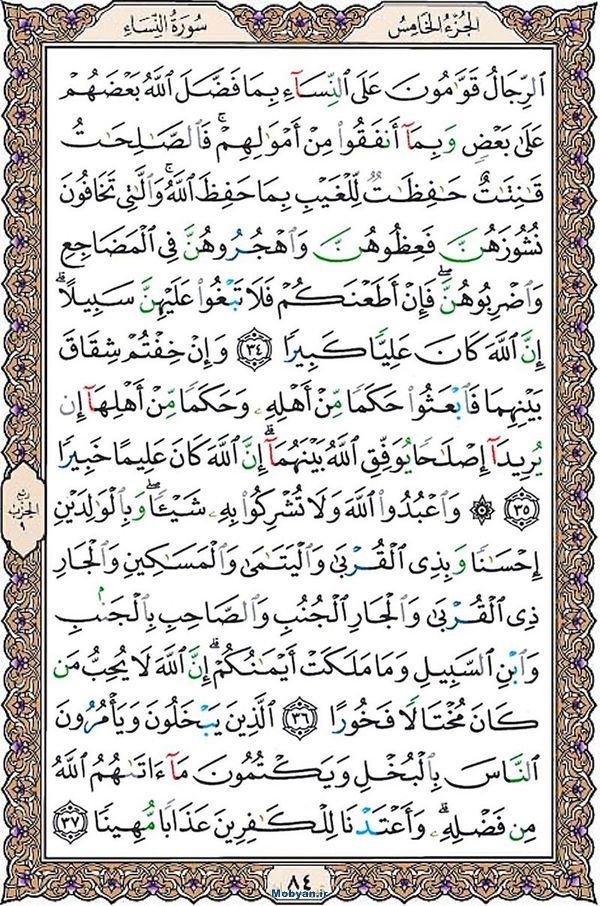 الجُزْءُ الخَامِسُ
سُورَةُ النِّسَاءِ
الرِّجَالُ قَوَّامُونَ عَلَى النِّسَآءِ بِمَا فَضَّلَ اللَّهُ بَعْضَهُمْ
عَلَىٰ بَعْضٍ وَبِمَآ أَنفَقُوا مِنْ أَمْوَالِهِمْ ۚ فَالصَّالِحَاتُ
قَانِتَاتٌ حَافِظَاتٌ لِّلْغَيْبِ بِمَا حَفِظَ اللَّهُ ۚ وَالَّاتِي تَخَافُونَ
نُشُوزَهُنَّ فَعِظُوهُنَّ وَاهْجُرُوهُنَّ فِي الْمَضَاجِعِ
وَاضْرِبُوهُنَّ ۖ فَإِنْ أَطَعْنَكُمْ فَلَا تَبْغُوا عَلَيْهِنَّ سَبِيلًا ۗ
إِنَّ اللَّهَ كَانَ عَلِيًّا كَبِيرًا ﴿٣٤﴾ وَإِنْ خِفْتُمْ شِقَاقَ
بَيْنِهِمَا فَابْعَثُوا حَكَمًا مِّنْ أَهْلِهِ وَحَكَمًا مِّنْ أَهْلِهَآ إِن
يُرِيدَآ إِصْلَاحًا يُوَفِّقِ اللَّهُ بَيْنَهُمَآ ۗ إِنَّ اللَّهَ كَانَ عَلِيمًا خَبِيرًا
﴿٣٥﴾ ۞ وَاعْبُدُوا اللَّهَ وَلَا تُشْرِكُوا بِهِ شَيْئًا ۖ وَبِالْوَالِدَيْنِ
إِحْسَانًا وَبِذِي الْقُرْبَىٰ وَالْيَتَامَىٰ وَالْمَسَاكِينِ وَالْجَارِ
ذِي الْقُرْبَىٰ وَالْجَارِ الْجُنُبِ وَالصَّاحِبِ بِالْجَنبِ
وَابْنِ السَّبِيلِ وَمَا مَلَكَتْ أَيْمَانُكُمْ ۗ إِنَّ اللَّهَ لَا يُحِبُّ مَن
كَانَ مُخْتَالًا فَخُورًا ﴿٣٦﴾ الَّذِينَ يَبْخَلُونَ وَيَأْمُرُونَ
النَّاسَ بِالْبُخْلِ وَيَكْتُمُونَ مَآ ءَاتَاهُمُ اللَّهُ
مِن فَضْلِهِ ۗ وَأَعْتَدْنَا لِلْكَافِرِينَ عَذَابًا مُّهِينًا ﴿٣٧﴾
ربع
الحزب
٩
٨٤
Mobyan.ir